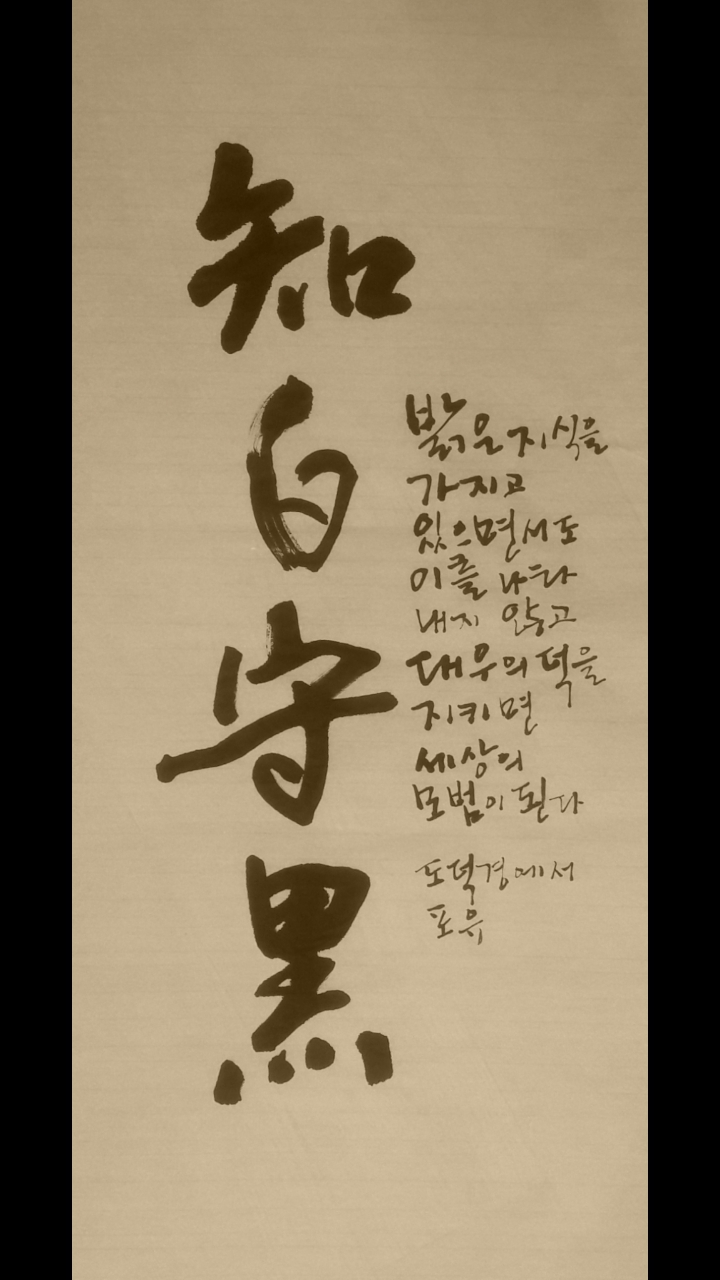 知白守黑
밝은 지식을
가지고
있으면서도
이를 나타
내지 않고
대우의 덕을
지키면
세상의
모범이 된다
도덕경에서
포유